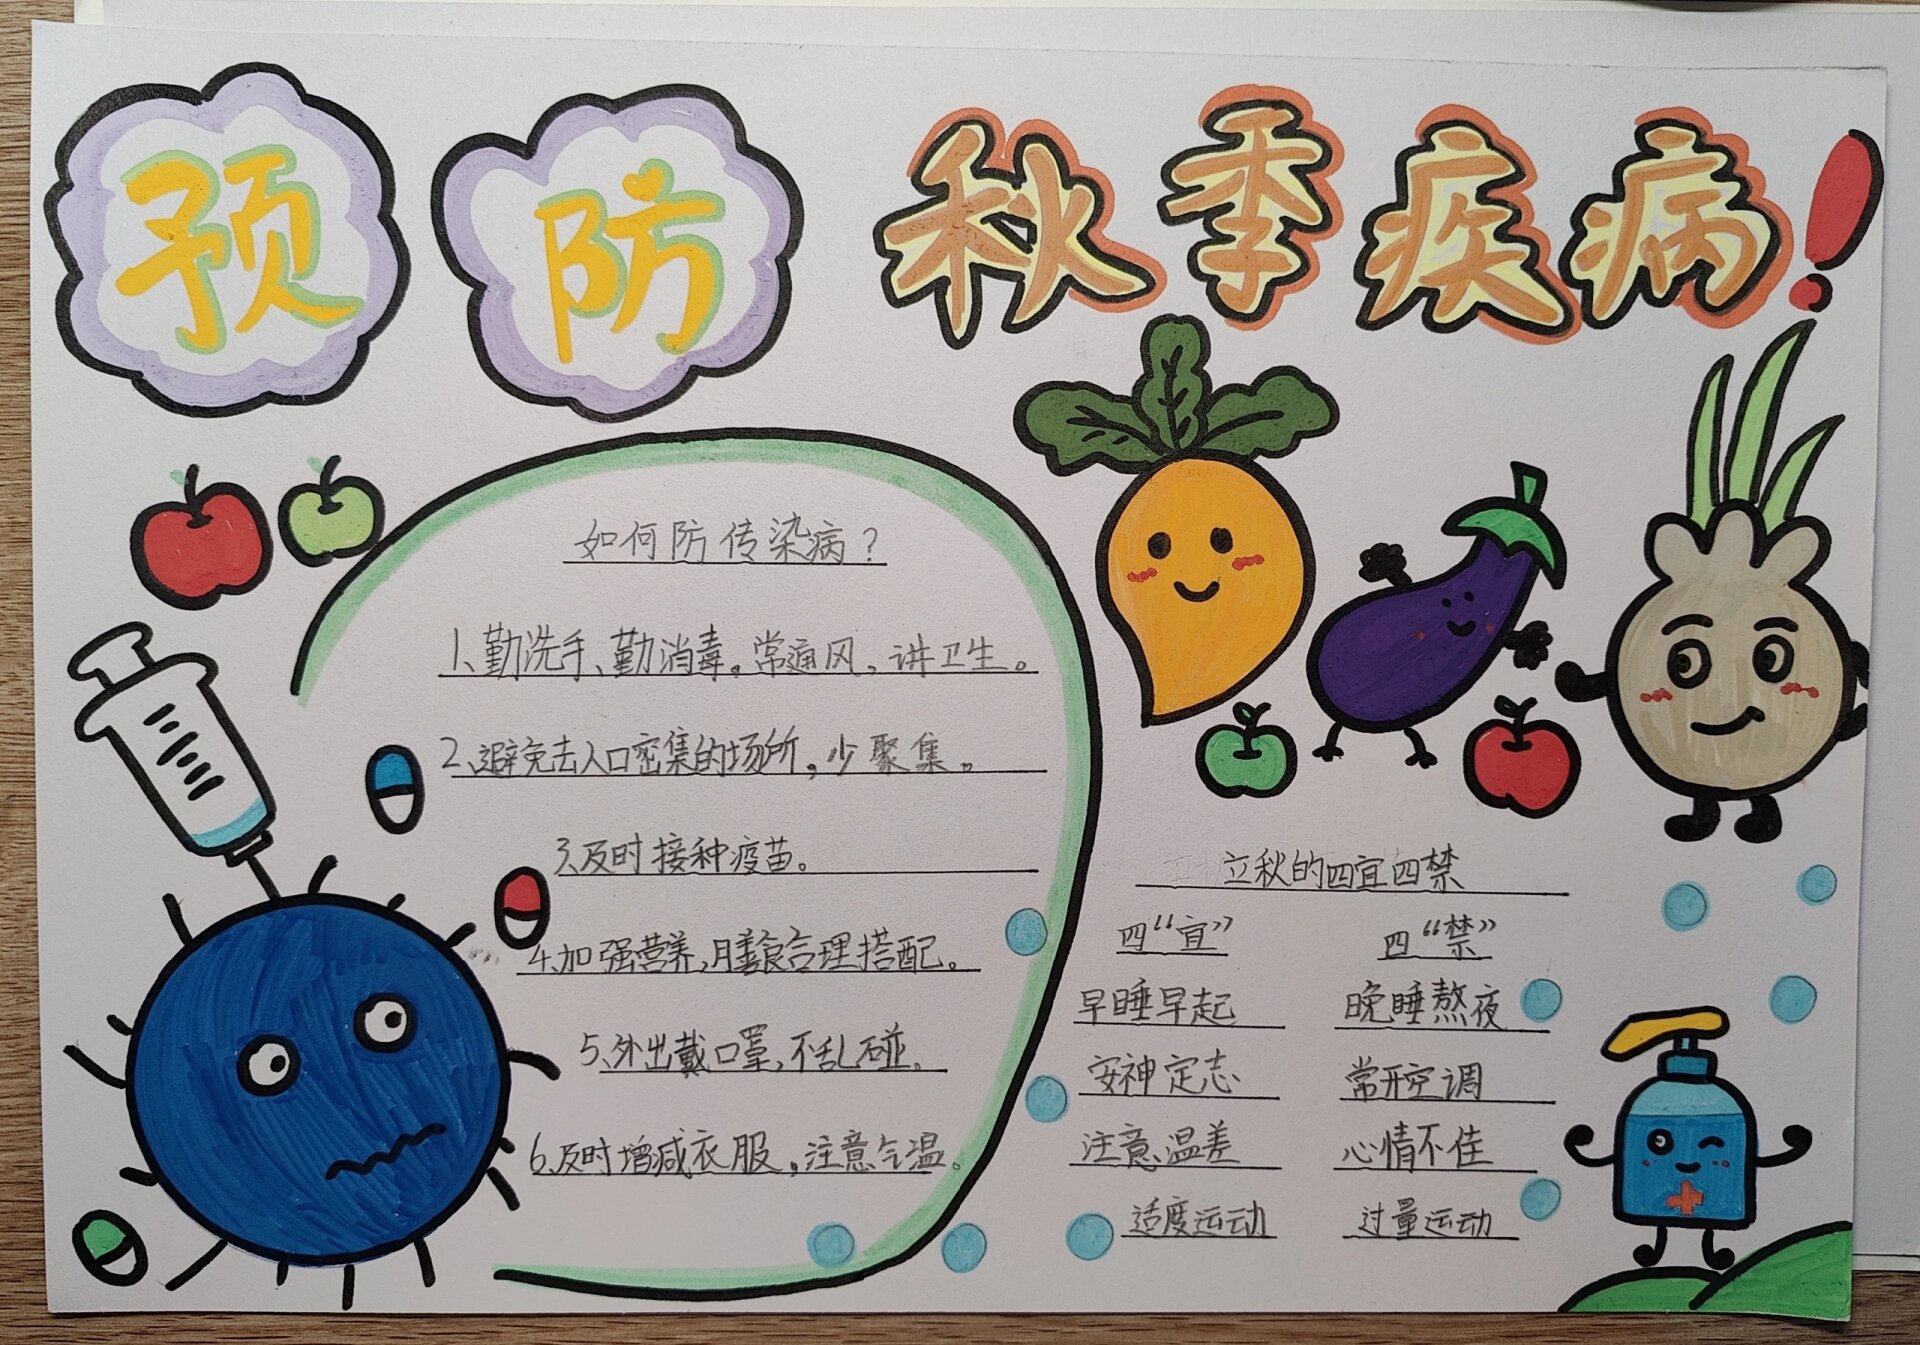 预防秋季疾病!
如何防传染病?
1、勤洗手、勤消毒。常通风,讲卫生。
2、避免去人口密集的场所,少聚集。
3、及时接种疫苗。
4、加强营养,膳食合理搭配。
5、外出戴口罩,不乱碰。
6、及时增减衣服。注意气温。
立秋的四宜四禁
四“宜” 四“禁”
早睡早起 晚睡熬夜
安神定志 常开空调
注意温差 心情不佳
适度运动 过量运动